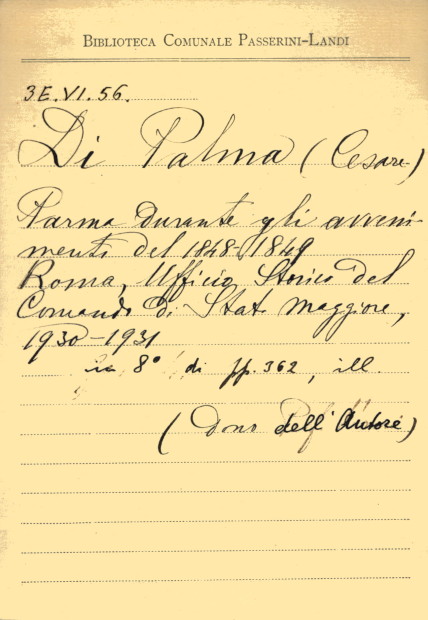 BIBLIOTECA COMUNALE PASSERINI-LANDI
3E.VI.56.
Di Palma (Cesare)
Parma durante gli avveni-
menti del 1848-1849
Roma, Ufficio Storico del
Comando di Stato Maggiore,
1930-1931
in 8° di pp. 362, ill.
(Dono dell'Autore)